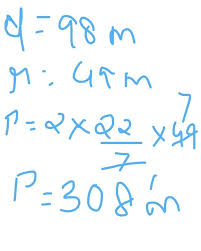 d = 98 m
r = 49 m
P = 2 × 22/7 × 49 7
P = 308 m